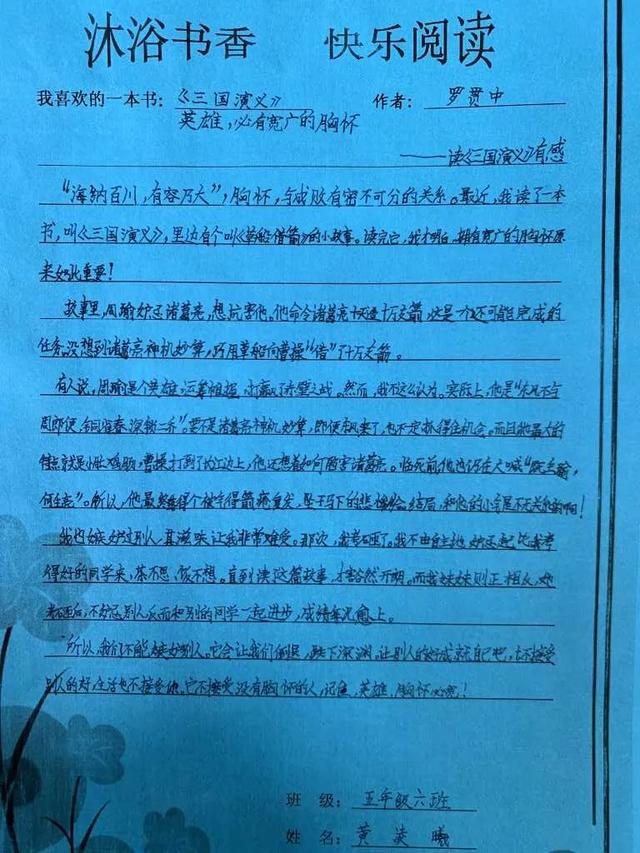 沐浴书香 快乐阅读
我喜欢的一本书：《三国演义》 作者：罗贯中
英雄，必有宽广的胸怀
——读《三国演义》有感
“海纳百川，有容乃大”，胸怀，与成败有密不可分的关系。最近，我读了一本
书，叫《三国演义》，里边有个叫《草船借箭》的小故事。读完它，我才明白，拥有宽广的胸怀原
来如此重要！
故事里，周瑜妒忌诸葛亮，想坑害他。他命令诸葛亮十天造十万支箭，这是一个不可能完成的
任务。没想到诸葛亮神机妙算，巧用草船向曹操“借”了十万支箭。
有人说，周瑜是个英雄，运筹帷幄，打赢了赤壁之战。然而，我不这么认为。实际上，他是“东风不与
周郎便，铜雀春深锁二乔”。要不是诸葛亮神机妙算，即便风来了，也不定抓得住机会。而且他最大的
特点就是小肚鸡肠，曹操打到了长江边上，他还想着如何陷害诸葛亮。临死前，他也仍在大喊“既生瑜，
何生亮”。所以，他最终落得个被气得箭疮复发，坠于马下的悲惨结局，和他的小气是不无关他的啊！
我也嫉妒过别人，其滋味让我非常难受。那次，我考砸了。我不由自主地妒忌起比我考
得好的同学来，茶不思，饭不想。直到读这篇故事，才豁然开朗。而我妹妹则正相反，她
考砸后，不妒忌别人，反而和别的同学一起进步，成绩年况愈上。
所以，我们不能嫉妒别人。它会让我们倒退，跌下深渊。让别人的好成就自己吧，
别人的好，生活也不接受你。它不接受没有胸怀的人，记住，英雄，胸怀必宽！
班级：五年级六班
姓名：黄 曦